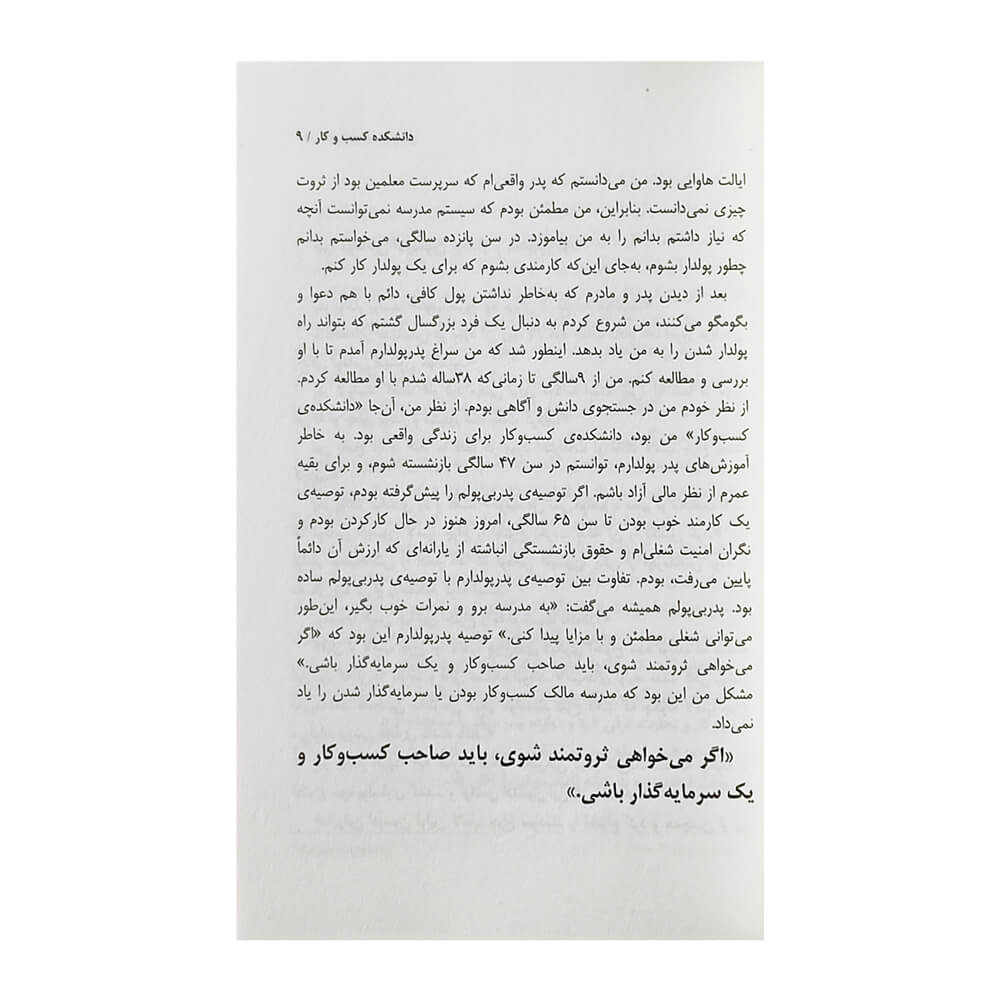 دانشکده کسب و کار / ۹
ایالت هاوایی بود. من می‌دانستم که پدر واقعی‌ام که سرپرست معلمین بود از ثروت
چیزی نمی‌دانست. بنابراین، من مطمئن بودم که سیستم مدرسه نمی‌توانست آنچه
که نیاز داشتم بدانم را به من بیاموزد. در سن پانزده سالگی، می‌خواستم بدانم
چطور پولدار بشوم، به‌جای این‌که کارمندی بشوم که برای یک پولدار کار کنم.
بعد از دیدن پدر و مادرم که به‌خاطر نداشتن پول کافی، دائم با هم دعوا و
بگومگو می‌کنند، من شروع کردم به دنبال یک فرد بزرگسال گشتم که بتواند راه
پولدار شدن را به من یاد بدهد. اینطور شد که من سراغ پدرپولدارم آمدم تا با او
بررسی و مطالعه کنم. من از ۹سالگی تا زمانی‌که ۳۸ساله شدم با او مطالعه کردم.
از نظر خودم من در جستجوی دانش و آگاهی بودم. از نظر من، آن‌جا «دانشکده‌ی
کسب‌وکار» من بود، دانشکده‌ی کسب‌وکار برای زندگی واقعی بود. به خاطر
آموزش‌های پدر پولدارم، توانستم در سن ۴۷ سالگی بازنشسته شوم، و برای بقیه
عمرم از نظر مالی آزاد باشم. اگر توصیه‌ی پدربی‌پولم را پیش‌گرفته بودم، توصیه‌ی
یک کارمند خوب بودن تا سن ۶۵ سالگی، امروز هنوز در حال کارکردن بودم و
نگران امنیت شغلی‌ام و حقوق بازنشستگی انباشته از یارانه‌ای که ارزش آن دائماً
پایین می‌رفت، بودم. تفاوت بین توصیه‌ی پدرپولدارم با توصیه‌ی پدربی‌پولم ساده
بود. پدربی‌پولم همیشه می‌گفت: «به مدرسه برو و نمرات خوب بگیر، این‌طور
می‌توانی شغلی مطمئن و با مزایا پیدا کنی.» توصیه پدرپولدارم این بود که «اگر
می‌خواهی ثروتمند شوی، باید صاحب کسب‌وکار و یک سرمایه‌گذار باشی.»
مشکل من این بود که مدرسه مالک کسب‌وکار بودن یا سرمایه‌گذار شدن را یاد
نمی‌داد.
«اگر می‌خواهی ثروتمند شوی، باید صاحب کسب‌وکار و
یک سرمایه‌گذار باشی.»